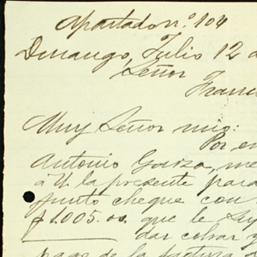 Apartado nº. 104
Durango, Julio 12 d
Señor
Franc
Muy Señor mio:
Por en
Antonio Garza, me
á U la presente para
junto cheque con
$1.005.00. que le
dar cobrar y
pago de la factura d